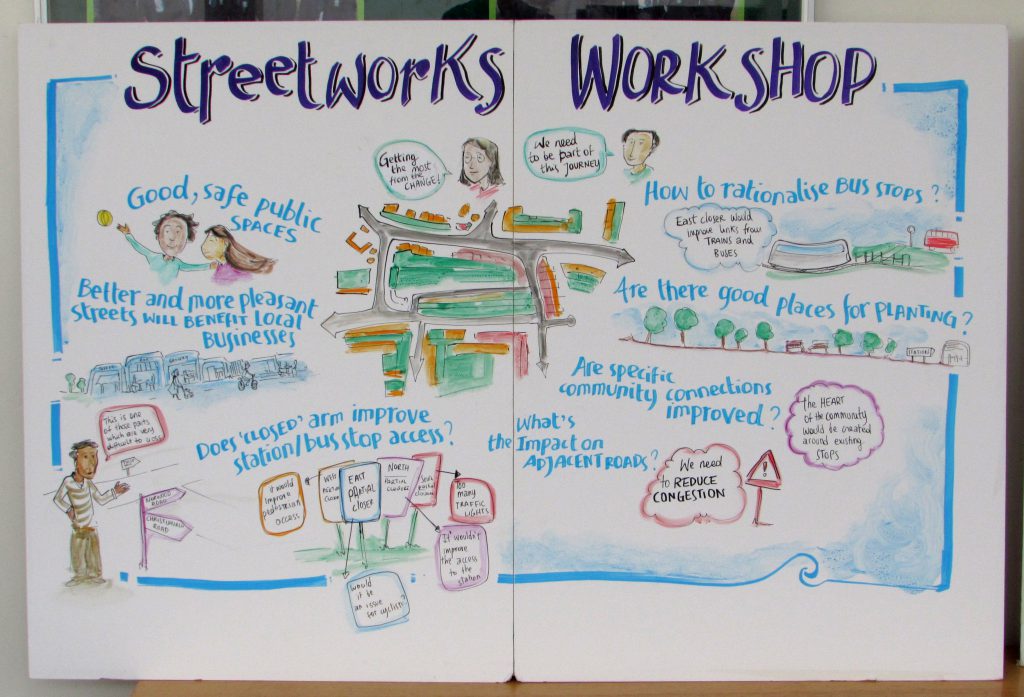 Streetworks WORKSHOP
Getting
the most
from the
CHANGE!
We need
to be part of
this JOURNEY
Good, safe public
SPACES
Better and more pleasant
streets WILL BENEFIT Local
Businesses
This is one
of those parts
which are very
difficult to cross
CHRISTCHURCH
ROAD
ROAD
Does 'CLOSED' arm improve
station/bus stop access?
it would
improve
pedestrian
access
WEST
PARTIAL
CLOSURE
EAST
PARTIAL
CLOSER
NORTH
PARTIAL
CLOSURE
TOO
MANY
TRAFFIC
LIGHTS
It wouldn't
improve
the access
to the
station
would
it be
an issue
for cyclists?
How to rationalise BUS STOPS?
East closer would
improve links from
TRAINS and
BUSES
Are there good places for PLANTING?
STATION
Are specific
community connections
improved?
the HEART
of the community
would be created
around existing
STOPS
What's
the Impact on
ADJACENT ROADS?
We need
to REDUCE
CONGESTION
!